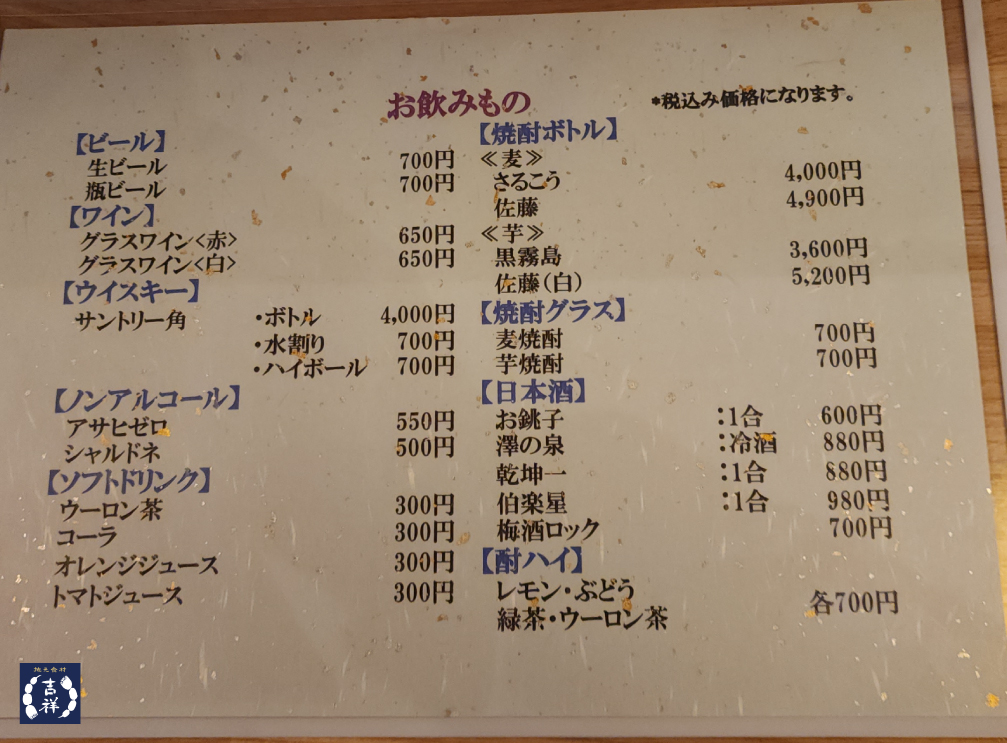 お飲みもの
*税込み価格になります。
【ビール】
生ビール 700円
瓶ビール 700円
【ワイン】
グラスワイン<赤> 650円
グラスワイン<白> 650円
【ウイスキー】
サントリー角 ・ボトル 4,000円
・水割り 700円
・ハイボール 700円
【ノンアルコール】
アサヒゼロ 550円
シャルドネ 500円
【ソフトドリンク】
ウーロン茶 300円
コーラ 300円
オレンジジュース 300円
トマトジュース 300円
【焼酎ボトル】
≪麦≫
さるこう 4,000円
佐藤 4,900円
≪芋≫
黒霧島 3,600円
佐藤(白) 5,200円
【焼酎グラス】
麦焼酎 700円
芋焼酎 700円
【日本酒】
お銚子 :1合 600円
澤の泉 :冷酒 880円
乾坤一 :1合 880円
伯楽星 :1合 980円
梅酒ロック 700円
【酎ハイ】
レモン・ぶどう
緑茶・ウーロン茶 各700円
地元食材
吉祥